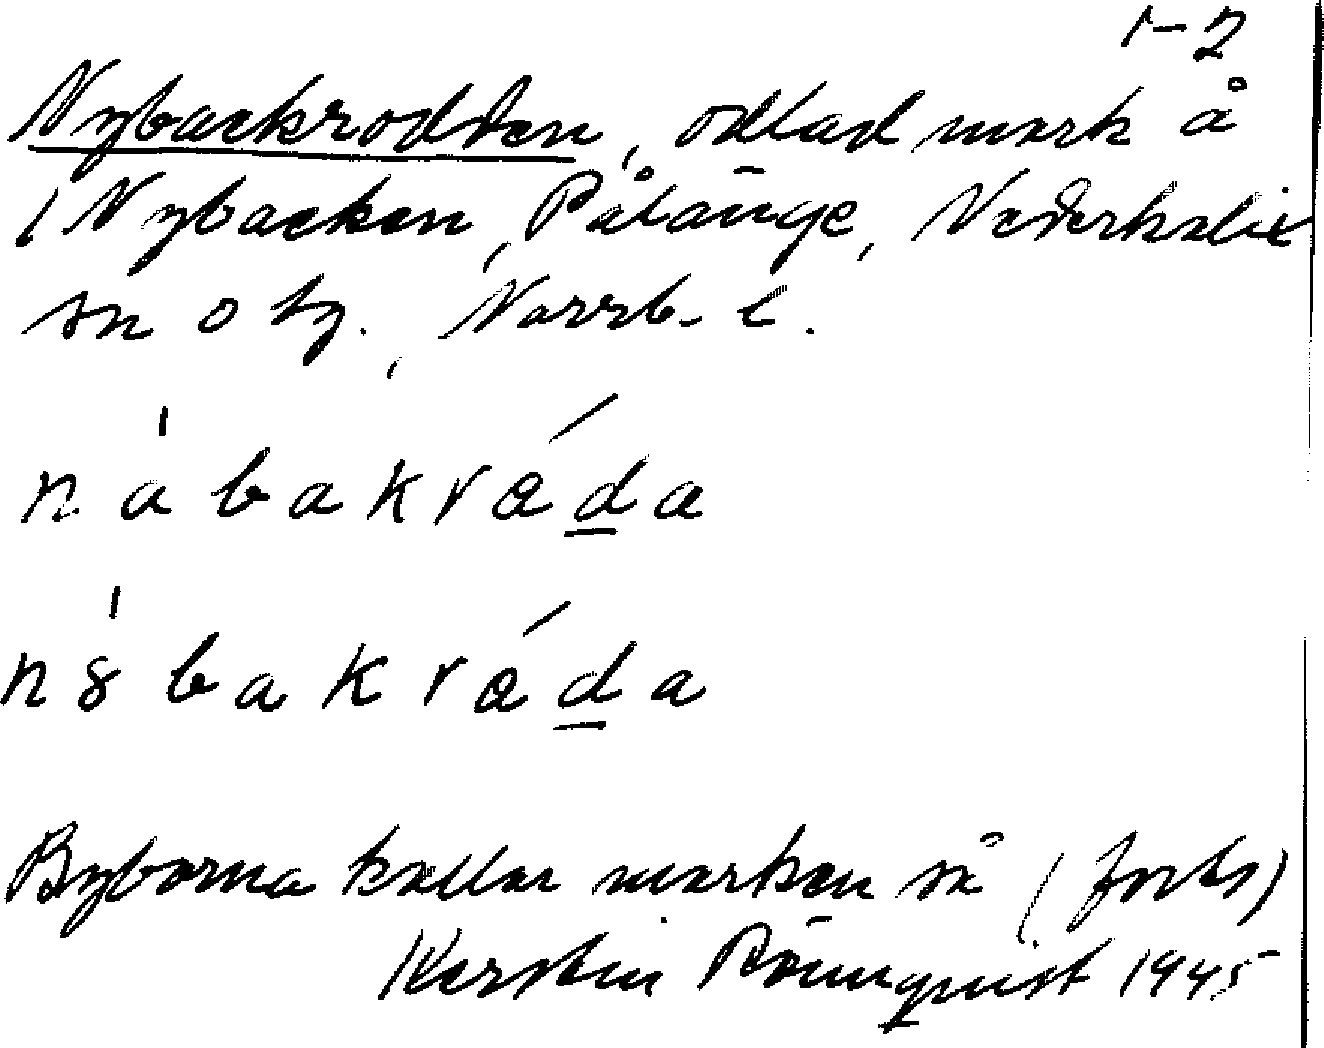 1-2
Nybackrödden, odlad mark å
/ Nybacken, Pålänge, Nederkalix
sn o tg., Norrb. l.
nábakrǽda
n8́bakrǽda
Byborna kallar marken så (forts)
Kerstin Rönnquist 1945